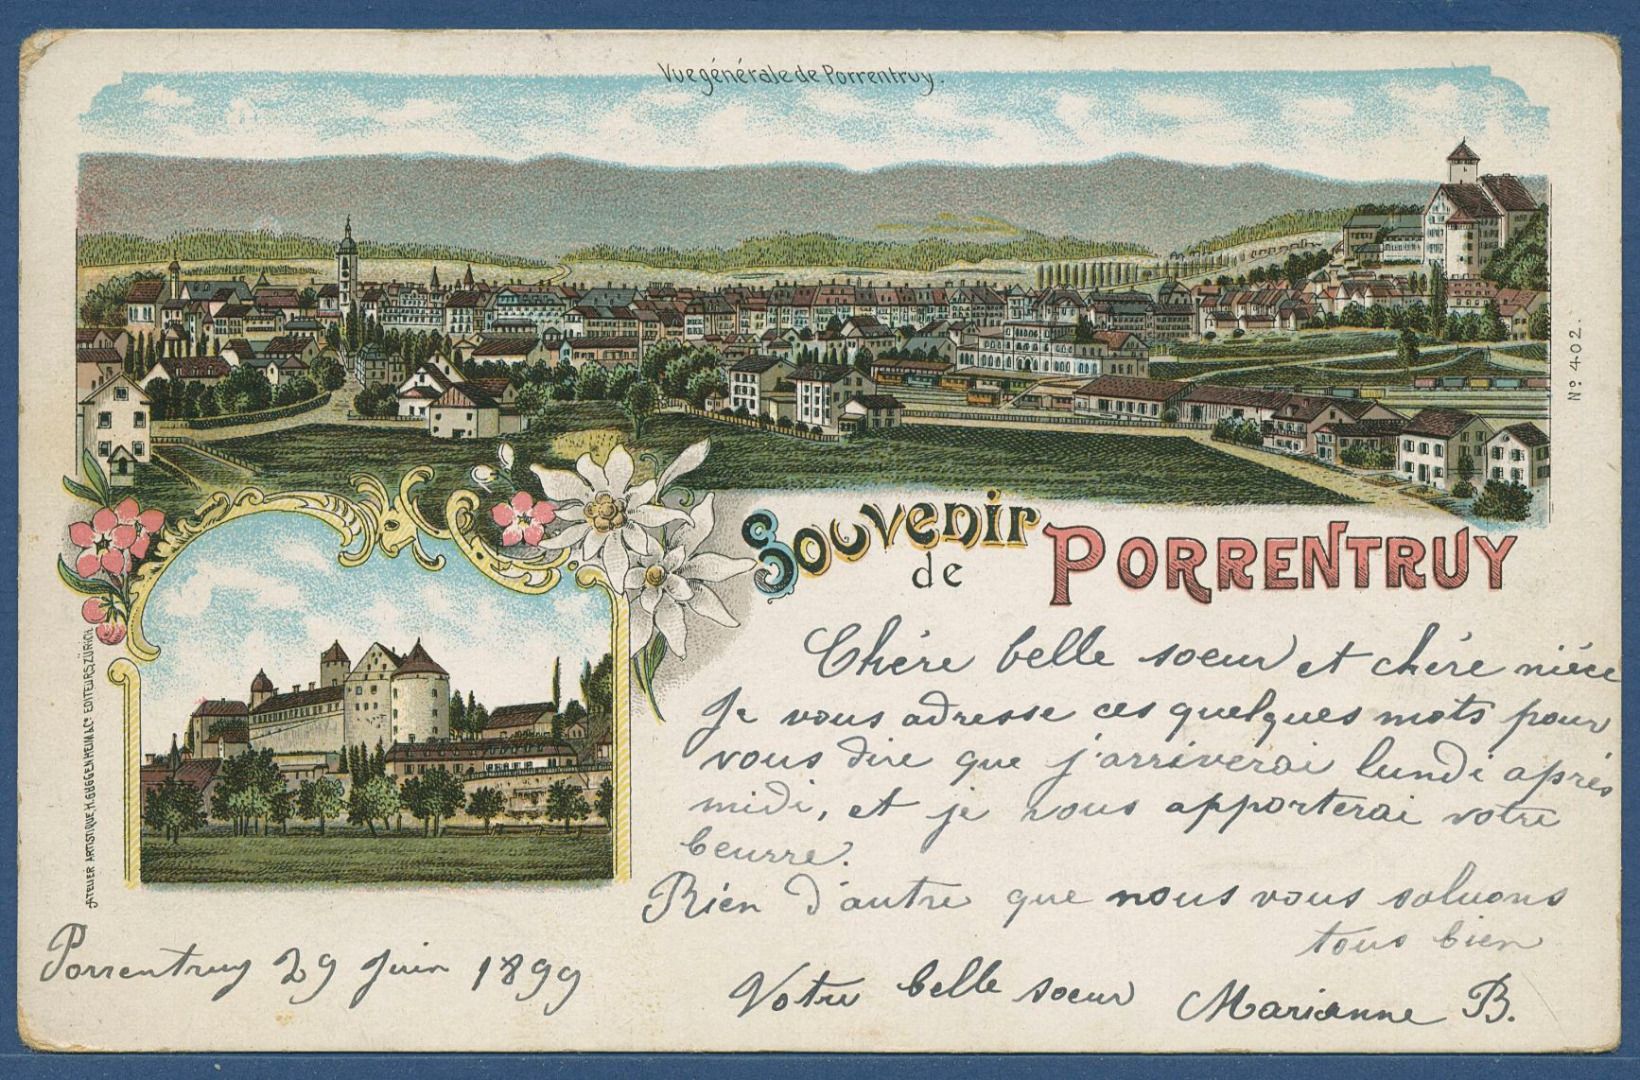 Vue générale de Porrentruy.
Nº 402.
Souvenir
de PORRENTRUY
ATELIER ARTISTIQUE, H. GUGGENHEIM & Cº EDITEURS, ZÜRICH
Chère belle soeur et chère nièce
Je vous adresse ces quelques mots pour
vous dire que j'arriverai lundi après
midi, et je vous apporterai votre
beurre.
Rien d'autre que nous vous saluons
tous bien
Votre belle soeur Marianne B.
Porrentruy 29 Juin 1899